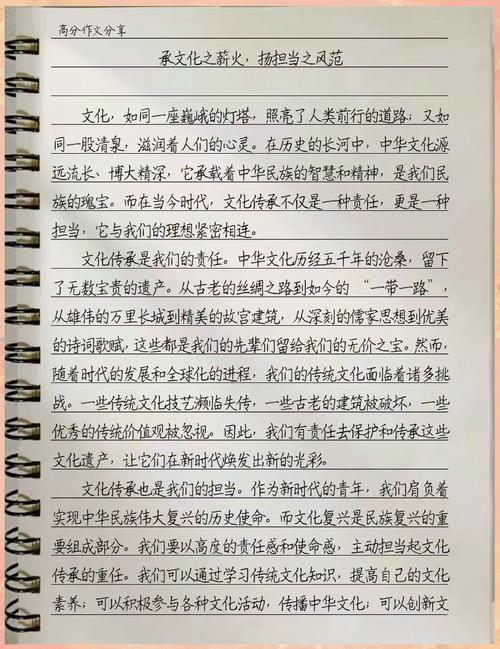 高分作文分享
承文化之薪火，扬担当之风范
文化，如同一座巍峨的灯塔，照亮了人类前行的道路；又如
同一股清泉，滋润着人们的心灵。在历史的长河中，中华文化源
远流长、博大精深，它承载着中华民族的智慧和精神，是我们民
族的瑰宝。而在当今时代，文化传承不仅是一种责任，更是一种
担当，它与我们的理想紧密相连。
文化传承是我们的责任。中华文化历经五千年的沧桑，留下
了无数宝贵的遗产。从古老的丝绸之路到如今的“一带一路”，
从雄伟的万里长城到精美的故宫建筑，从深刻的儒家思想到优美
的诗词歌赋，这些都是我们的先辈们留给我们的无价之宝。然而，
随着时代的发展和全球化的进程，我们的传统文化面临着诸多挑
战。一些传统文化技艺濒临失传，一些古老的建筑被破坏，一些
优秀的传统价值观被忽视。因此，我们有责任去保护和传承这些
文化遗产，让它们在新时代焕发出新的光彩。
文化传承也是我们的担当。作为新时代的青年，我们肩负着
实现中华民族伟大复兴的历史使命。而文化复兴是民族复兴的重
要组成部分。我们要以高度的责任感和使命感，主动担当起文化
传承的重任。我们可以通过学习传统文化知识，提高自己的文化
素养；可以积极参与各种文化活动，传播中华文化；可以创新文